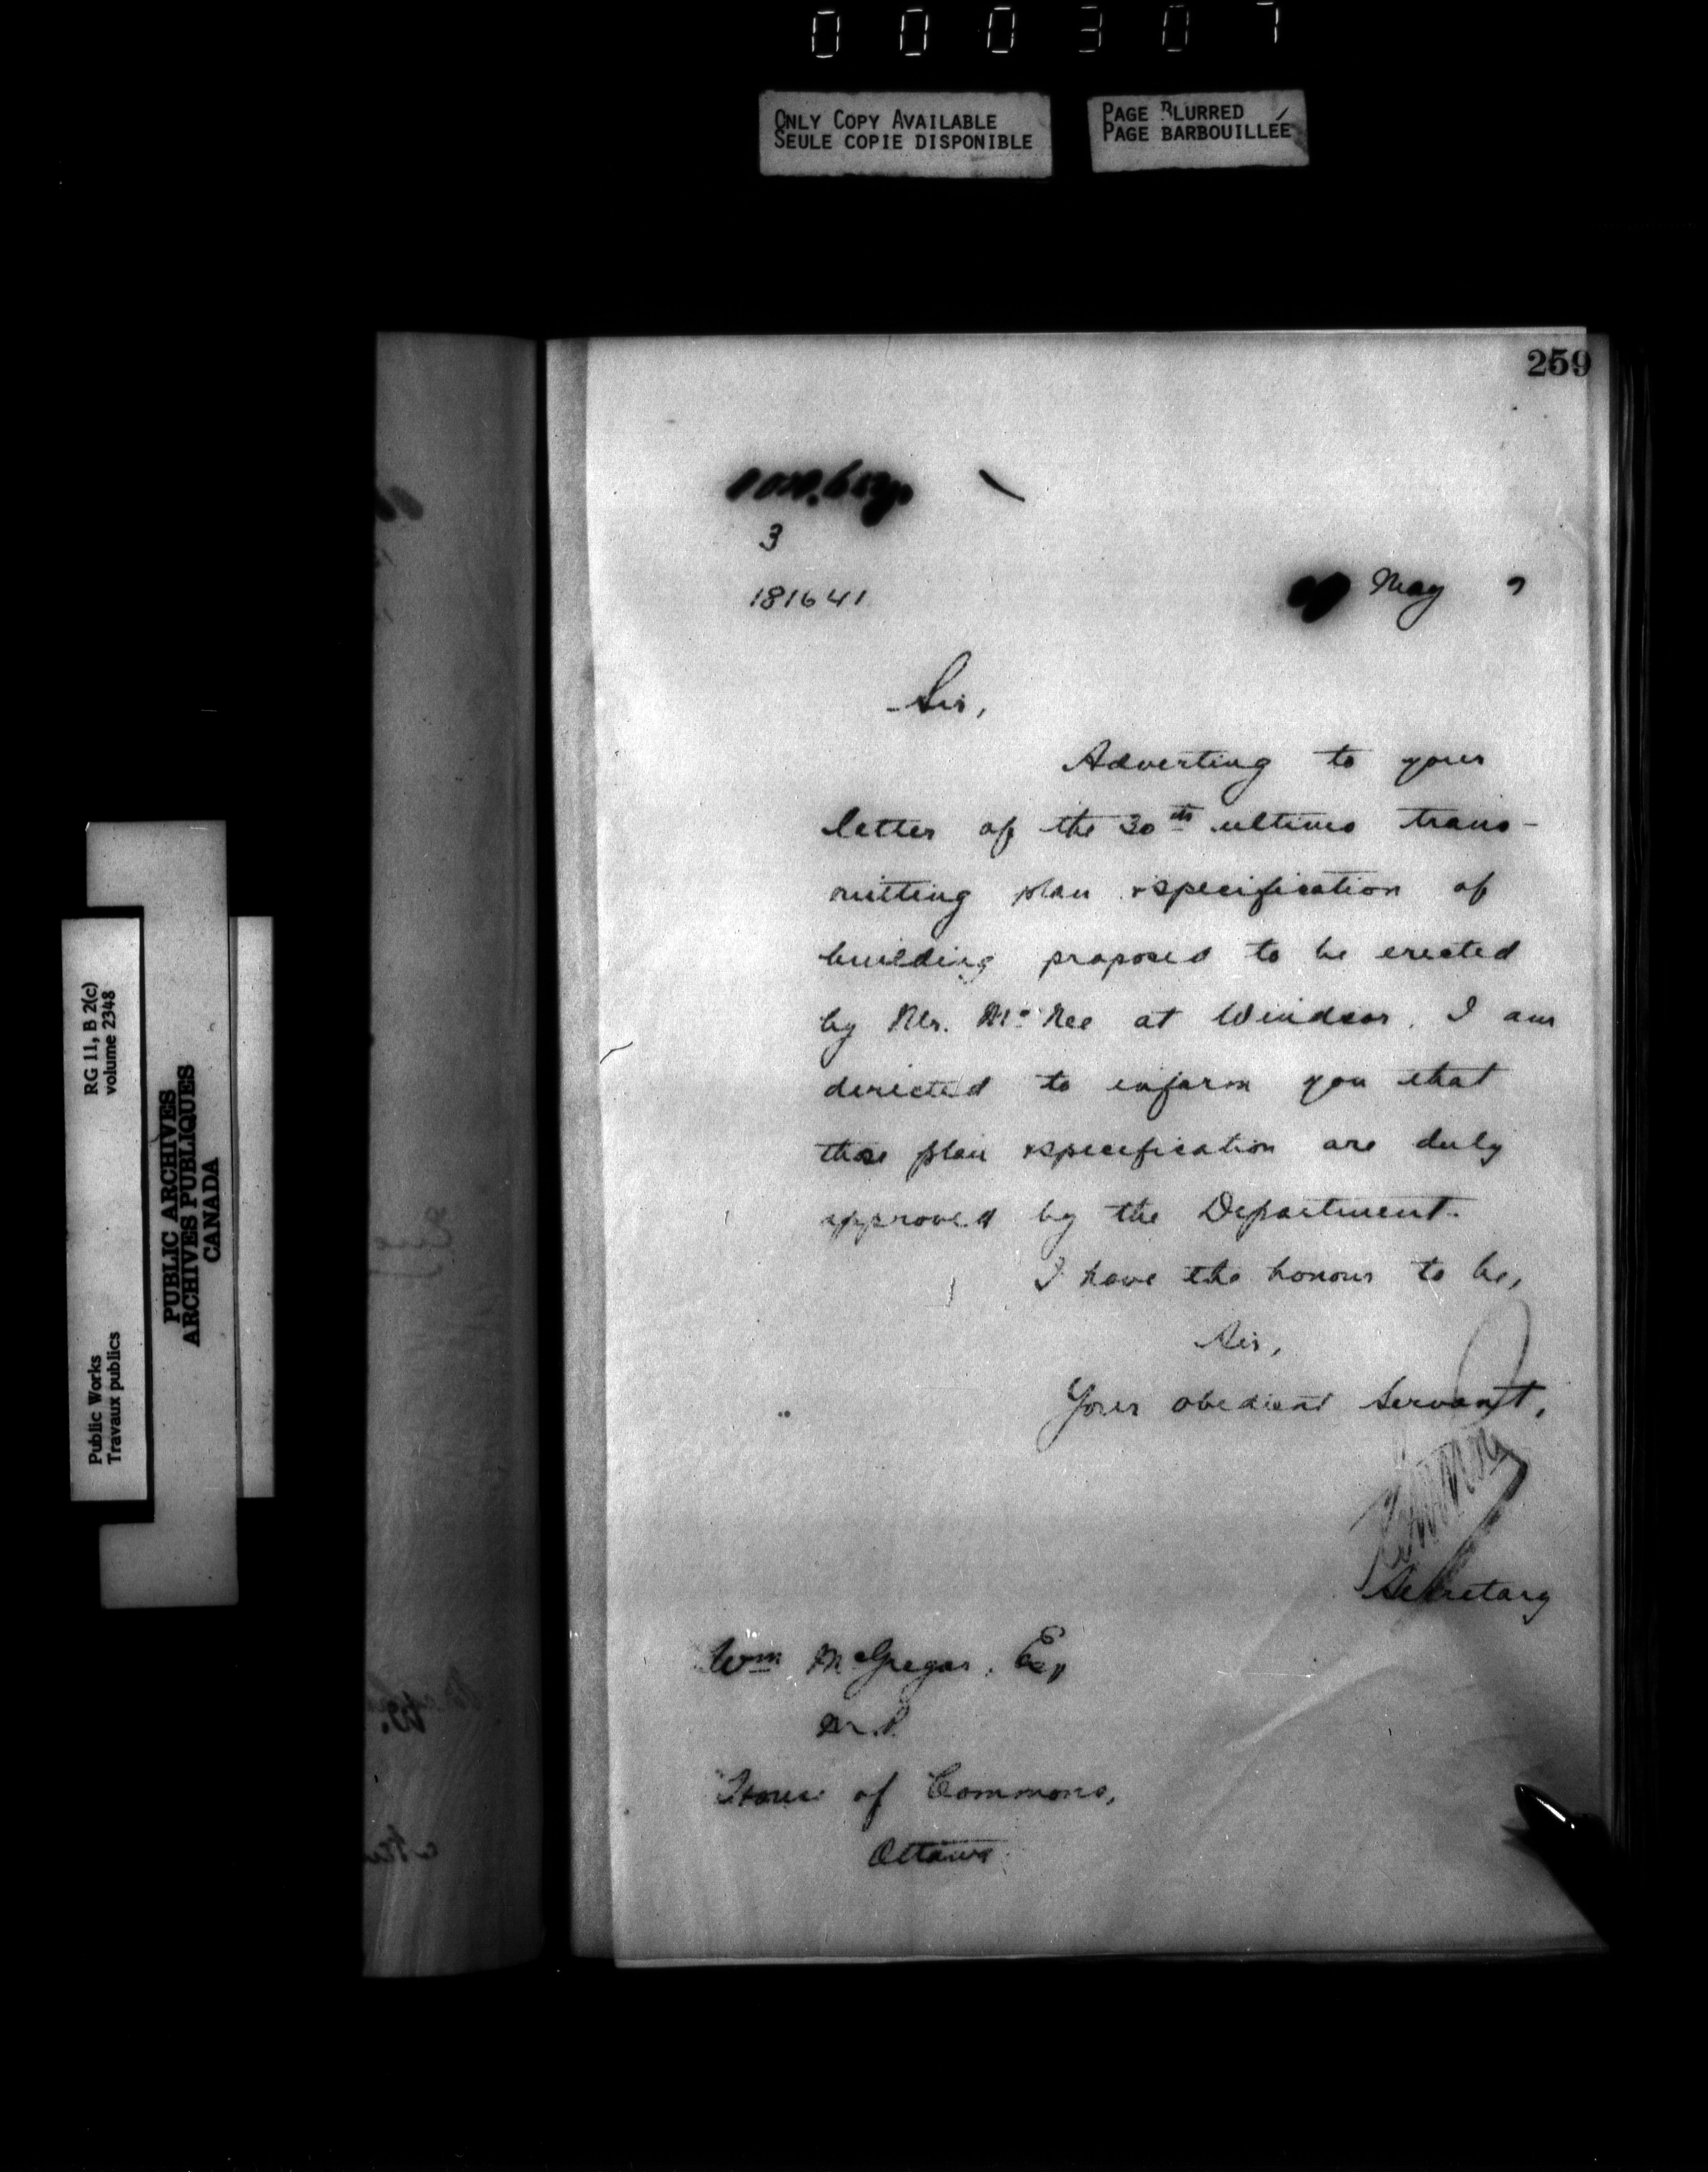 000307
ONLY COPY AVAILABLE
SEULE COPIE DISPONIBLE
PAGE BLURRED
PAGE BARBOUILLÉE
259
3
181641
May 7
Sir,
Adverting to your
letter of the 30th ultimo trans-
mitting plan & specification of
building proposed to be erected
by Mr. McKee at Windsor, I am
directed to inform you that
those plan & specification are duly
approved by the Department.
I have the honour to be,
Sir,
Your obedient Servant,
Secretary
Wm McGregor, Esq
M.P.
House of Commons,
Ottawa
Public Works
Travaux publics
RG 11, B 2(c)
volume 2348
PUBLIC ARCHIVES
ARCHIVES PUBLIQUES
CANADA